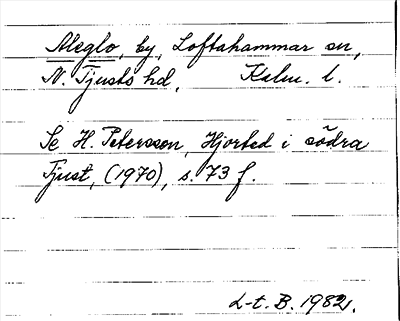 Aleglo, by, Loftahammar sn,
N. Tjusts hd, Kalm. l.
Se H. Petersson, Hjorted i södra
Tjust, (1970), s. 73 f.
L-t. B. 1982.